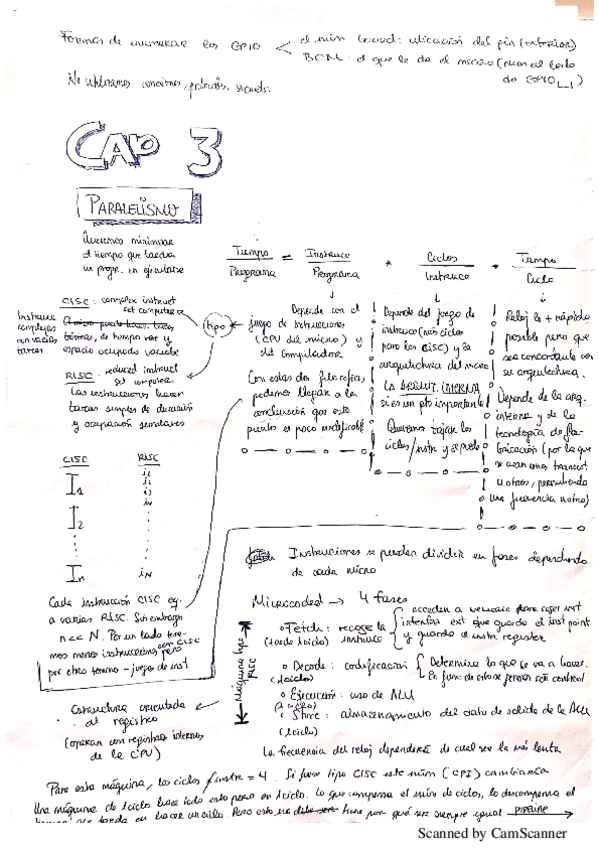 Formas de enumerar los GPIO < el núm board: ubicación del pin (exterior)
BCM: el que le da el micro (núm al lado
de GPIO_)
No utilizamos
CAP 3
PARALELISMO
Queremos minimizar
el tiempo que tarda
un progr. en ejecutarse
Tiempo / Programa = Instrucc / Programa * Ciclos / Instrucc * Tiempo / Ciclo
CISC: complex instruct
set computer
Instrucc
complejas
con varias
tareas
tareas, de tiempo var y
espacio ocupado variable
tipo
RISC: reduced instruct
set computer
Las instrucciones hacen
tareas simples de duración
y ocupación similares
Depende con el
juego de instrucciones
(CPU del micro) y
del compilador
Con estas dos filosofías,
podemos llegar a la
conclusión que este
punto es poco modificable
Depende del juego de
instrucc (más ciclos
para los CISC) y la
arquitectura del micro
La ARQUIT. INTERNA
sí es un pto importante
Queremos bajar los
ciclos/instr y se puede
Reloj lo + rápido
posible pero que
sea concordante con
su arquitectura.
Depende de la arq.
interna y de la
tecnología de fa-
bricación (por lo que
se usan unos transist
u otros, permitiendo
una frecuencia u otra)
CISC RISC
I1 i1
i2
i3
i4
I2
In iN
Cada instrucción CISC eq.
a varias RISC. Sin embargo
n << N. Por un lado tene-
mos menos instrucciones con CISC pero
por otro tenemos - juegos de inst
Estructura orientada
al registro
(operan con registros internos
de la CPU)
Instrucciones se pueden dividir en fases dependiendo
de cada micro
Microcoded → 4 fases
Máquina tipo
RISC
Fetch: recoge la
(tarda 1 ciclo) instrucc
acceden a memoria para coger inst
y guarda el instr register
Decode: codificación
(1 ciclo)
Determina lo que se va a hacer.
Ejecución: uso de ALU
(1 ciclo)
Store: almacenamiento del dato de salida de la ALU
(1 ciclo)
La frecuencia del reloj dependerá de cual sea la más lenta
Para esta máquina, los ciclos/instr = 4. Si fuese tipo CISC este núm (CPI) cambiaría
Una máquina de 1 ciclo hace todo esto pero en 1 ciclo. Lo que compensa el núm de ciclos, lo descompensa el
tarda en hacer un ciclo. Pero esto no tiene por qué ser siempre igual PIPELINE →
Scanned by CamScanner